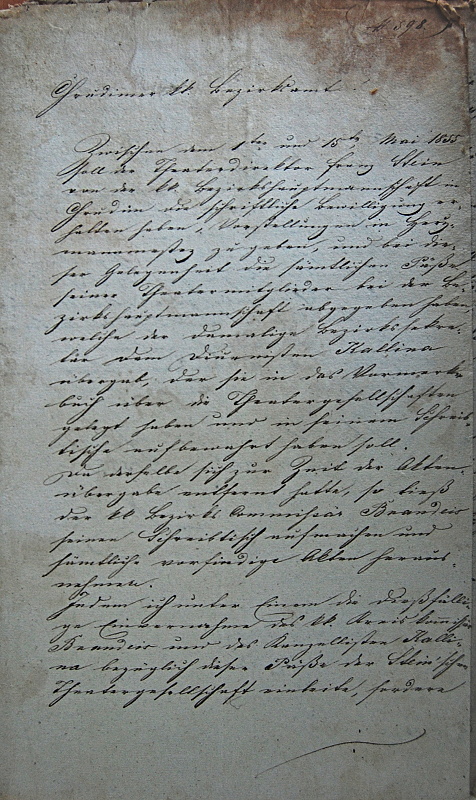 N. 898.
Chrudimer kk. Bezirksamt!
Zwischen dem 1ten und 15ten Mai 1855
soll der Theaterdirektor Franz Stein
von der kk. Bezirkshauptmannschaft in
Chrudim die schriftliche Bewilligung er-
halten haben, Vorstellungen in Herz-
mannmestez zu geben, und bei die-
ser Gelegenheit die sämtlichen Päße
seiner Theatermitglieder bei der Be-
zirkshauptmannschaft abgegeben haben
welche der damalige Bezirkssekre-
tär dem Diurnisten Kallina
übergab, der sie in das Vormerk-
buch über die Theatergesellschaften
gelegt haben und in seinem Schreib-
tische aufbewahrt haben soll.
Da derselbe sich zur Zeit der Akten-
übergabe entfernt hatte, so ließ
der kk Bezirks Commissär
seinen Schreibtisch aufmachen und
sämtliche vorfindige Akten heraus-
nehmen.
Indem ich unter Einem die dießfälli-
ge Einvernahme des kk. Kreiskommissärs
und des Kanzellisten Kalli-
na bezüglich dieser Päße der Stein'schen
Theatergesellschaft einleite, fordere